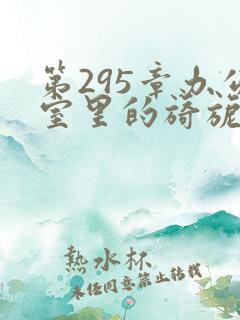 第295章办公
室里的旖旎
熱水杯
未经同意禁止转载